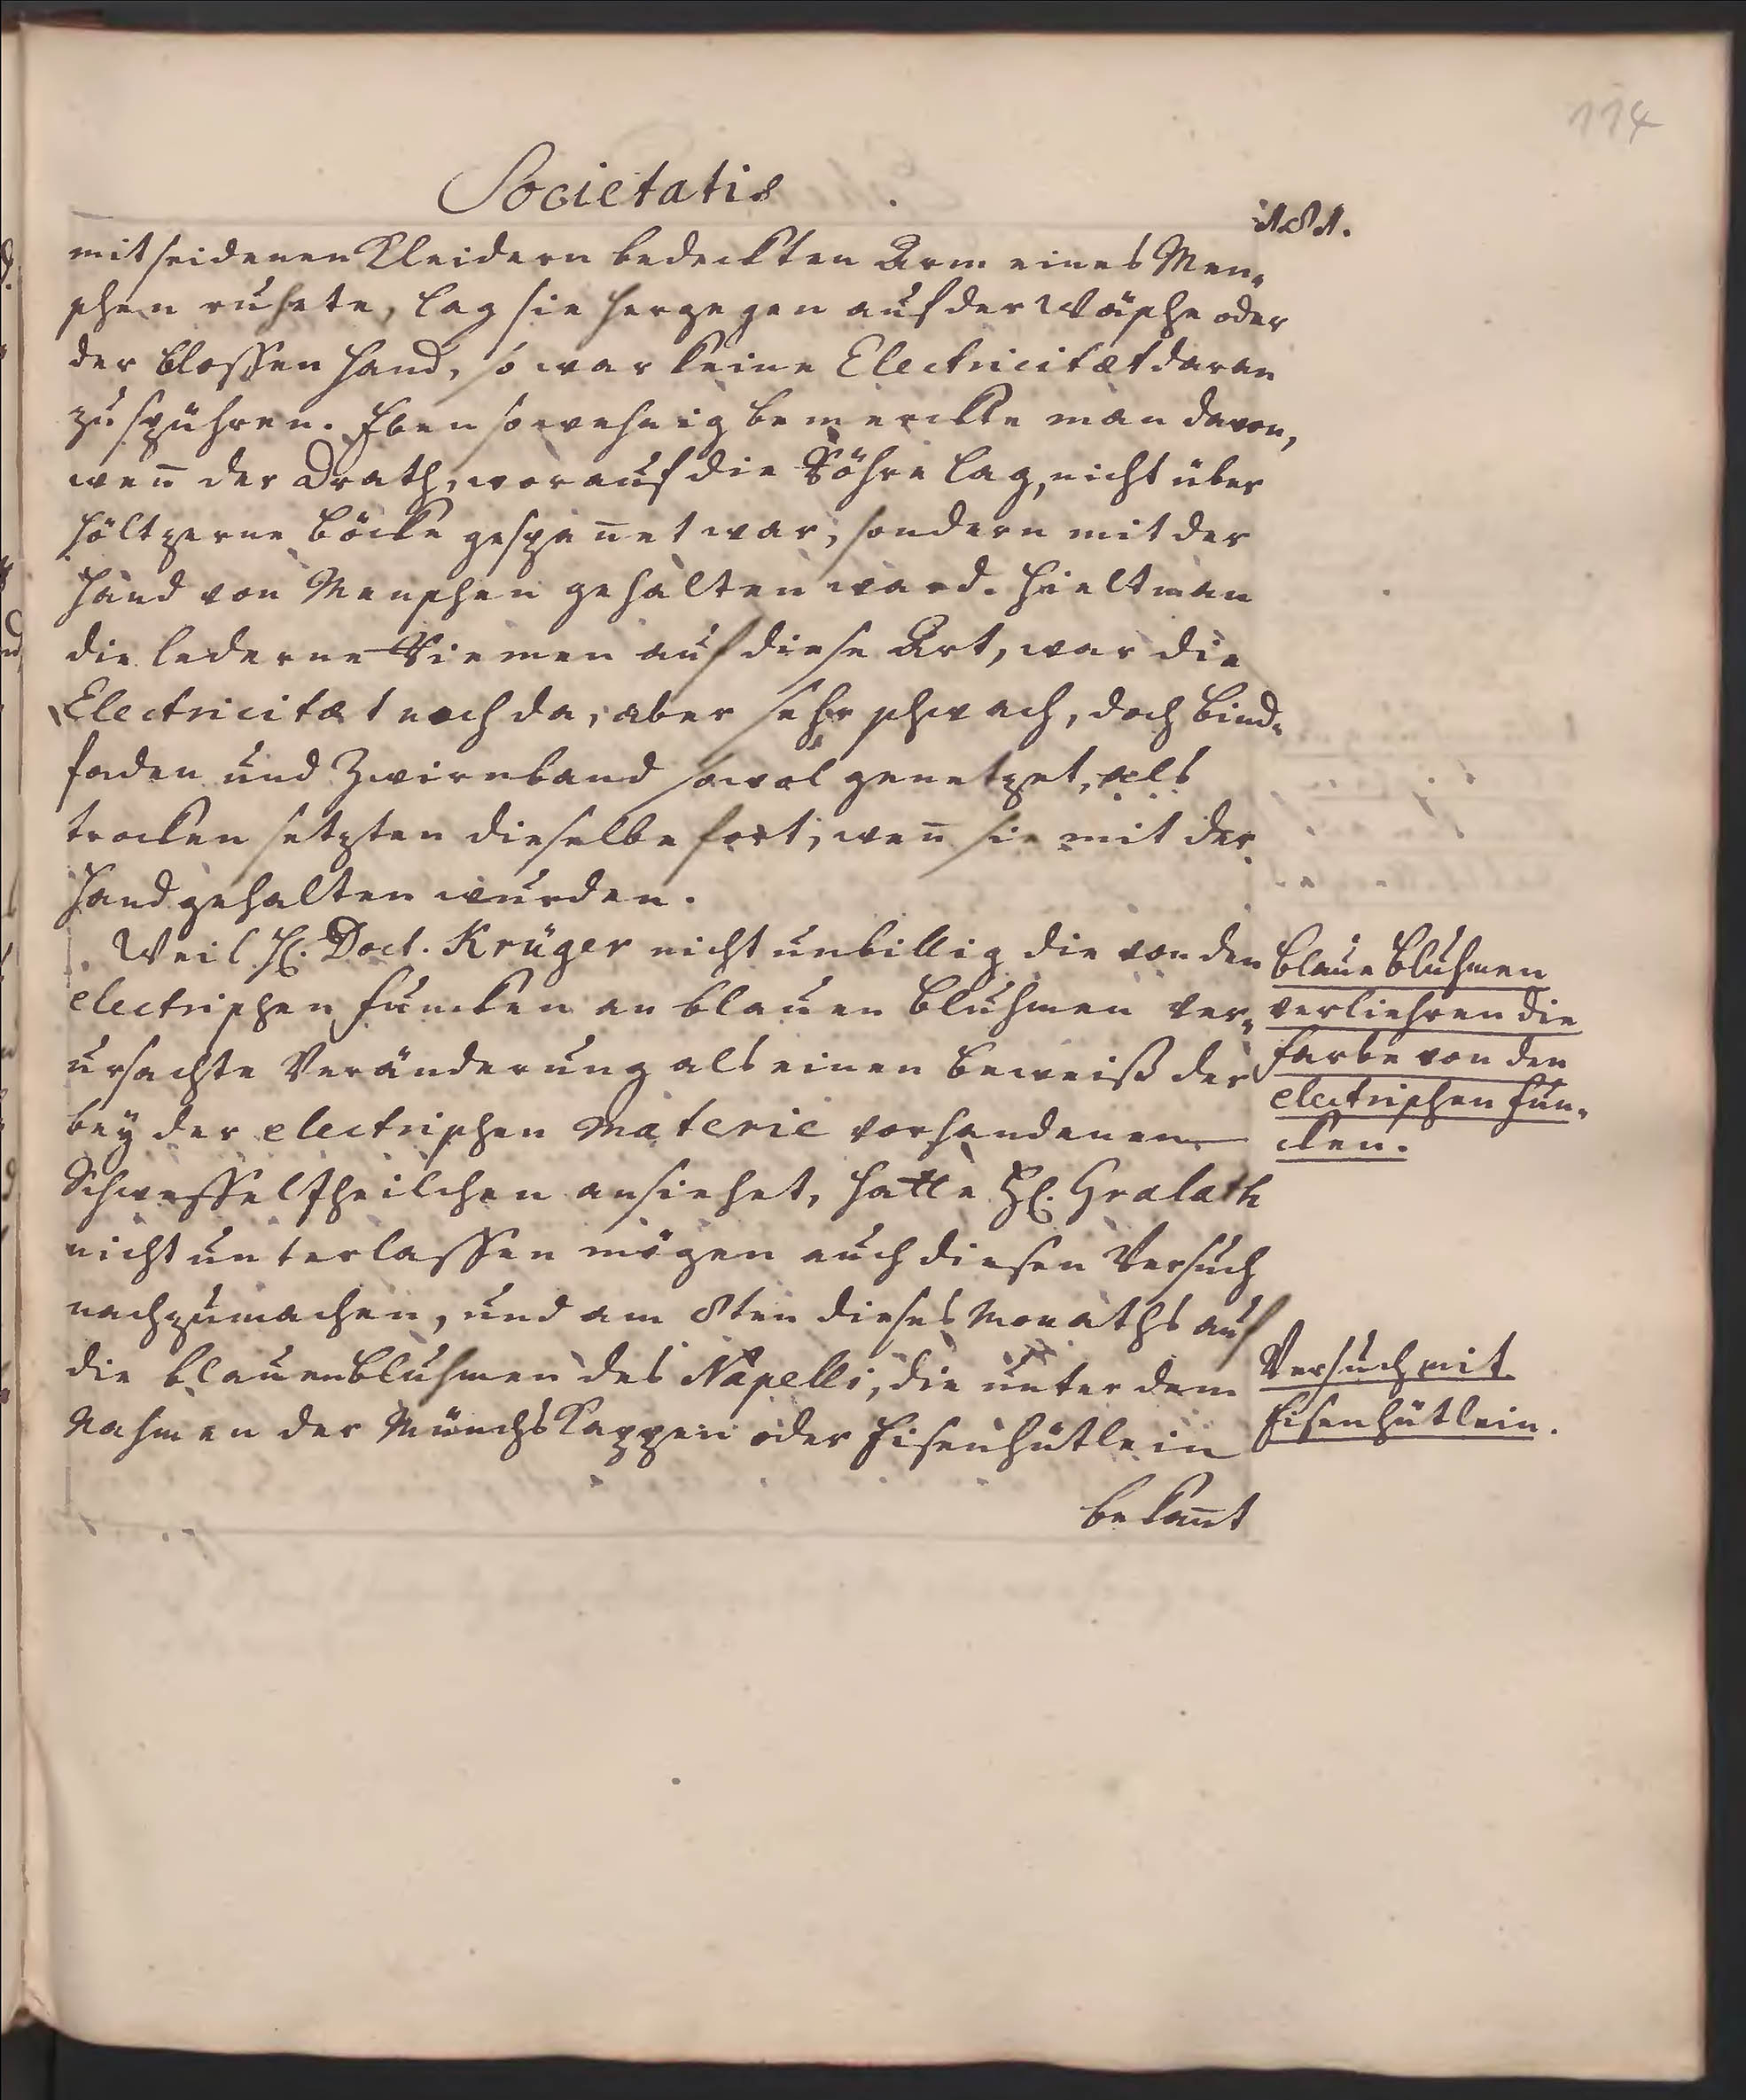 114
Societatis
181.
mit seidenen Kleidern bedeckten Arm eines Men„
schen ruhete, lag sie hergegen auf der Wäsche oder
der blossen Hand, so war keine Electricitæt daran
zu spühren. Eben so wehnig bemerckte man davon,
weñ der Drath, worauf die Röhre lag, nicht über
höltzerne Böcke gespañet war, sondern mit der
Hand von Menschen gehalten ward. Hielt man
die lederne Riemen auf diese Art, war die
Electricitæt noch da, aber sehr schwach, doch Bind„
faden und Zwirnband sowol genetzet, als
trocken setzten dieselbe fort, weñ sie mit der
Hand gehalten wurden.
Weil H. Doct. Krüger nicht unbillig die von den
electrischen Funcken an blauen Bluhmen ver„
ursachte Veränderung als einen Beweiß der
bey der electrischen Materie vorhandenen
Schweffeltheilchen ansiehet, hatte H. Gralath
nicht unterlassen mögen auch diesen Versuch
nachzumachen, und am 8ten dieses Monaths auf
die blauen Bluhmen des Napelli, die unter dem
Nahmen der MünchsKappen oder Eisenhütlein
bekañt
Blaue Bluhmen
verliehren die
Farbe von den
electrischen Fun„
cken.
Versuch mit
Eisenhütlein.